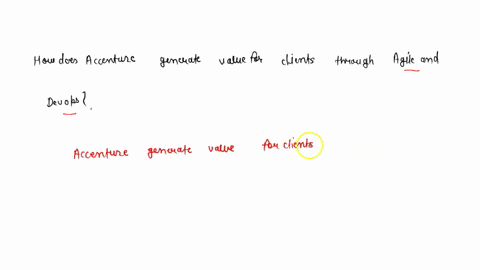 How does Accenture generate value for clients through Agile and
Devops?
Accenture generate value for clients